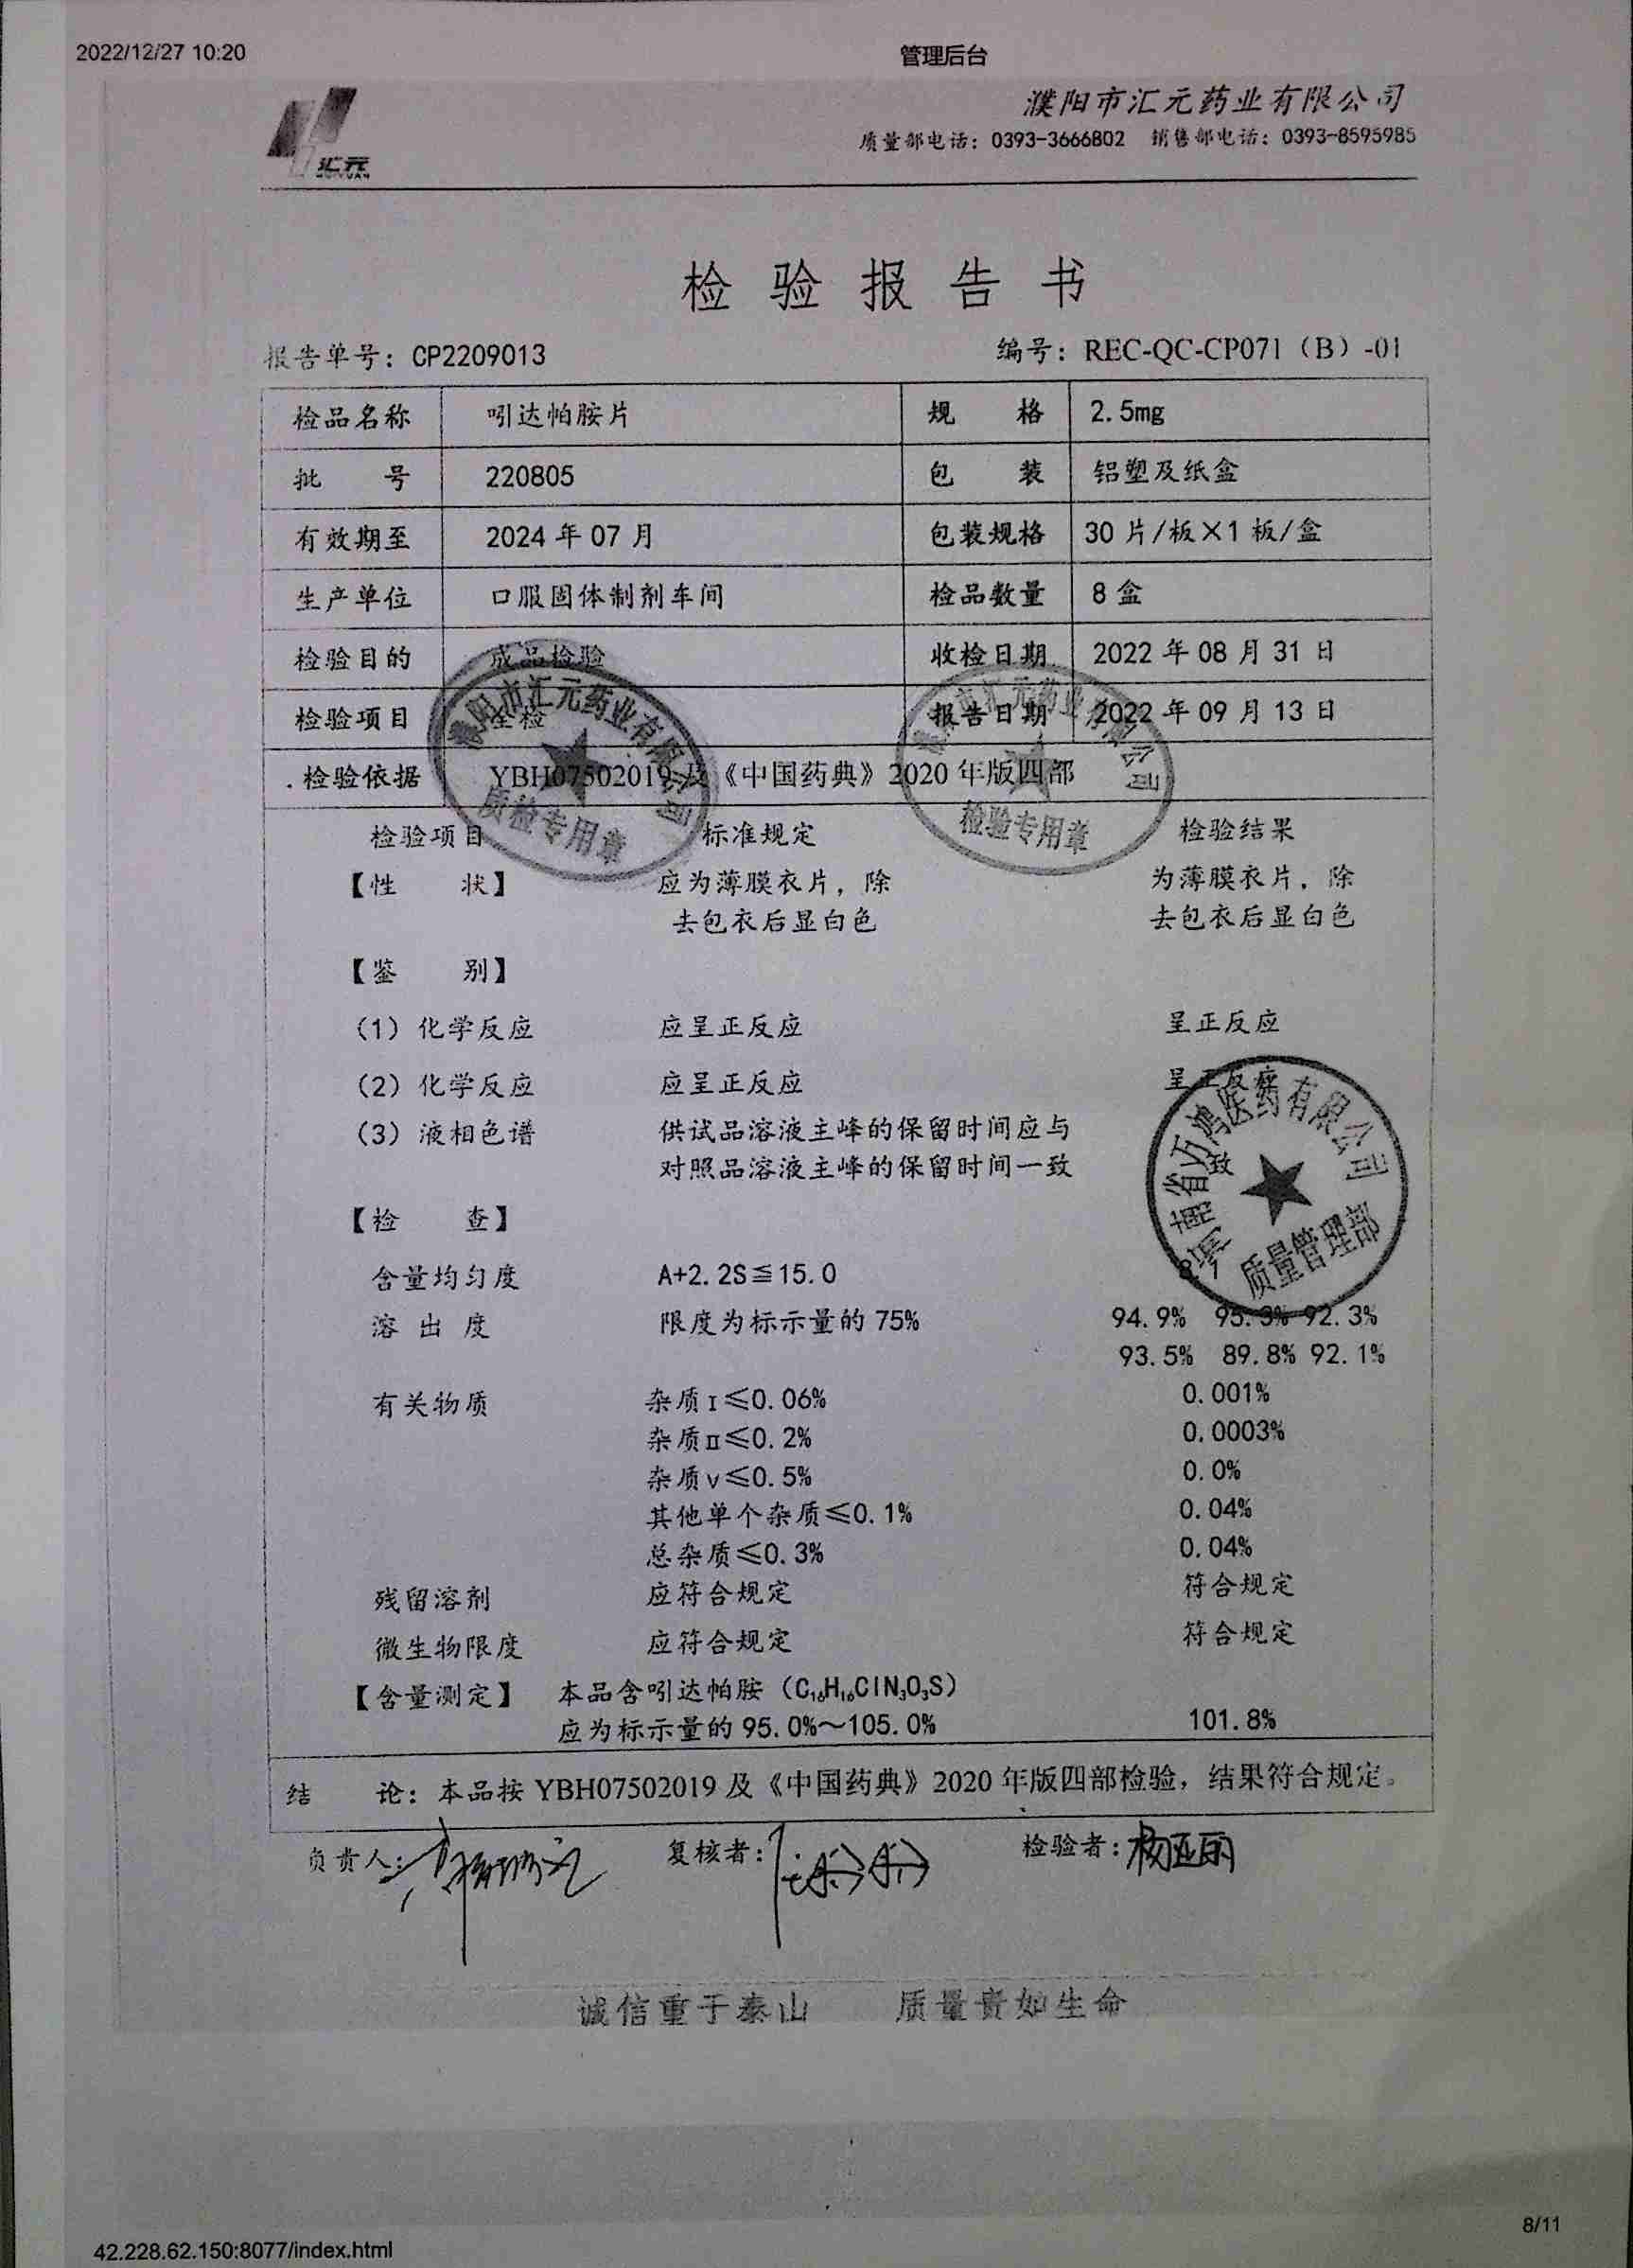 2022/12/27 10:20 管理后台
汇元 濮阳市汇元药业有限公司
HUIYUAN 质量部电话：0393-3666802 销售部电话：0393-8595985
检验报告书
报告单号：CP2209013 编号：REC-QC-CP071（B）-01
检品名称 吲达帕胺片 规 格 2.5mg
批 号 220805 包 装 铝塑及纸盒
有效期至 2024年07月 包装规格 30片/板×1板/盒
生产单位 口服固体制剂车间 检品数量 8盒
检验目的 成品检验 收检日期 2022年08月31日
检验项目 全检 报告日期 2022年09月13日
检验依据 YBH07502019及《中国药典》2020年版四部
濮阳市汇元药业有限公司
质检专用章
濮阳市汇元药业有限公司
检验专用章
检验项目 标准规定 检验结果
【性 状】 应为薄膜衣片，除 为薄膜衣片，除
去包衣后显白色 去包衣后显白色
【鉴 别】
（1）化学反应 应呈正反应 呈正反应
（2）化学反应 应呈正反应 呈正反应
（3）液相色谱 供试品溶液主峰的保留时间应与
对照品溶液主峰的保留时间一致 致
河南省万鸿医药有限公司
质量管理部
【检 查】
含量均匀度 A+2.2S≦15.0
溶出度 限度为标示量的75% 94.9% 95.3% 92.3%
93.5% 89.8% 92.1%
有关物质 杂质Ⅰ≤0.06% 0.001%
杂质Ⅱ≤0.2% 0.0003%
杂质Ⅴ≤0.5% 0.0%
其他单个杂质≤0.1% 0.04%
总杂质≤0.3% 0.04%
残留溶剂 应符合规定 符合规定
微生物限度 应符合规定 符合规定
【含量测定】 本品含吲达帕胺（C₁₆H₁₆ClN₃O₃S）
应为标示量的95.0%～105.0% 101.8%
结 论：本品按YBH07502019及《中国药典》2020年版四部检验，结果符合规定。
负责人： 复核者： 检验者：杨亚丽
诚信重于泰山 质量贵如生命
8/11
42.228.62.150:8077/index.html